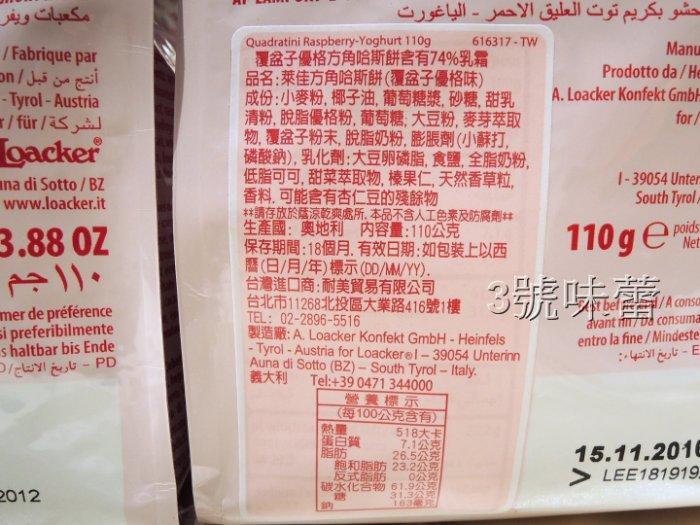 مكعبات ويفر
/ Fabrique par
on / أنتج من قبل
- Tyrol - Austria
r / für / لشركة
Loacker®
una di Sotto / BZ
www.loacker.it
3.88 OZ
١١٠ جم
mer de préférence
si preferibilmente
s haltbar bis Ende
تاريخ الانتاج / - PD
2012
Quadratini Raspberry-Yoghurt 110g 616317 - TW
覆盆子優格方角哈斯餅含有74%乳霜
品名:萊佳方角哈斯餅(覆盆子優格味)
成份:小麥粉, 椰子油, 葡萄糖漿, 砂糖, 甜乳
清粉, 脫脂優格粉, 葡萄糖, 大豆粉, 麥芽萃取
物, 覆盆子粉末, 脫脂奶粉, 膨脹劑(小蘇打,
磷酸鈉), 乳化劑:大豆卵磷脂, 食鹽, 全脂奶粉,
低脂可可, 甜菜萃取物, 榛果仁, 天然香草粒,
香料. 可能含有杏仁豆的殘餘物
**請存放於蔭涼乾爽處, 本品不含人工色素及防腐劑**
生產國: 奧地利 內容量:110公克
保存期間:18個月, 有效日期:如包裝上以西
曆(日/月/年)標示(DD/MM/YY).
台灣進口商:耐美貿易有限公司
台北市11268北投區大業路416號1樓
TEL: 02-2896-5516
製造廠: A. Loacker Konfekt GmbH - Heinfels
- Tyrol - Austria for Loacker® I – 39054 Unterinn
Auna di Sotto (BZ) – South Tyrol – Italy.
義大利 Tel:+39 0471 344000
營養標示
(每100公克含有)
熱量 518大卡
蛋白質 7.1公克
脂肪 26.5公克
飽和脂肪 23.2公克
反式脂肪 0公克
碳水化合物 61.9公克
糖 31.3公克
鈉 163毫克
حشو بكريم توت العليق الاحمر - الياغورت
Manu
Prodotto da / He
A. Loacker Konfekt GmbH
for /
I - 39054 Unter
South Tyrol /
110 g e poids
Net
3號味蕾
Best bef / A cons
avant fin / Da consuma
entro la fine / Mindeste
تاريخ الانتهاء: / - E
15.11.201
> LEE181919